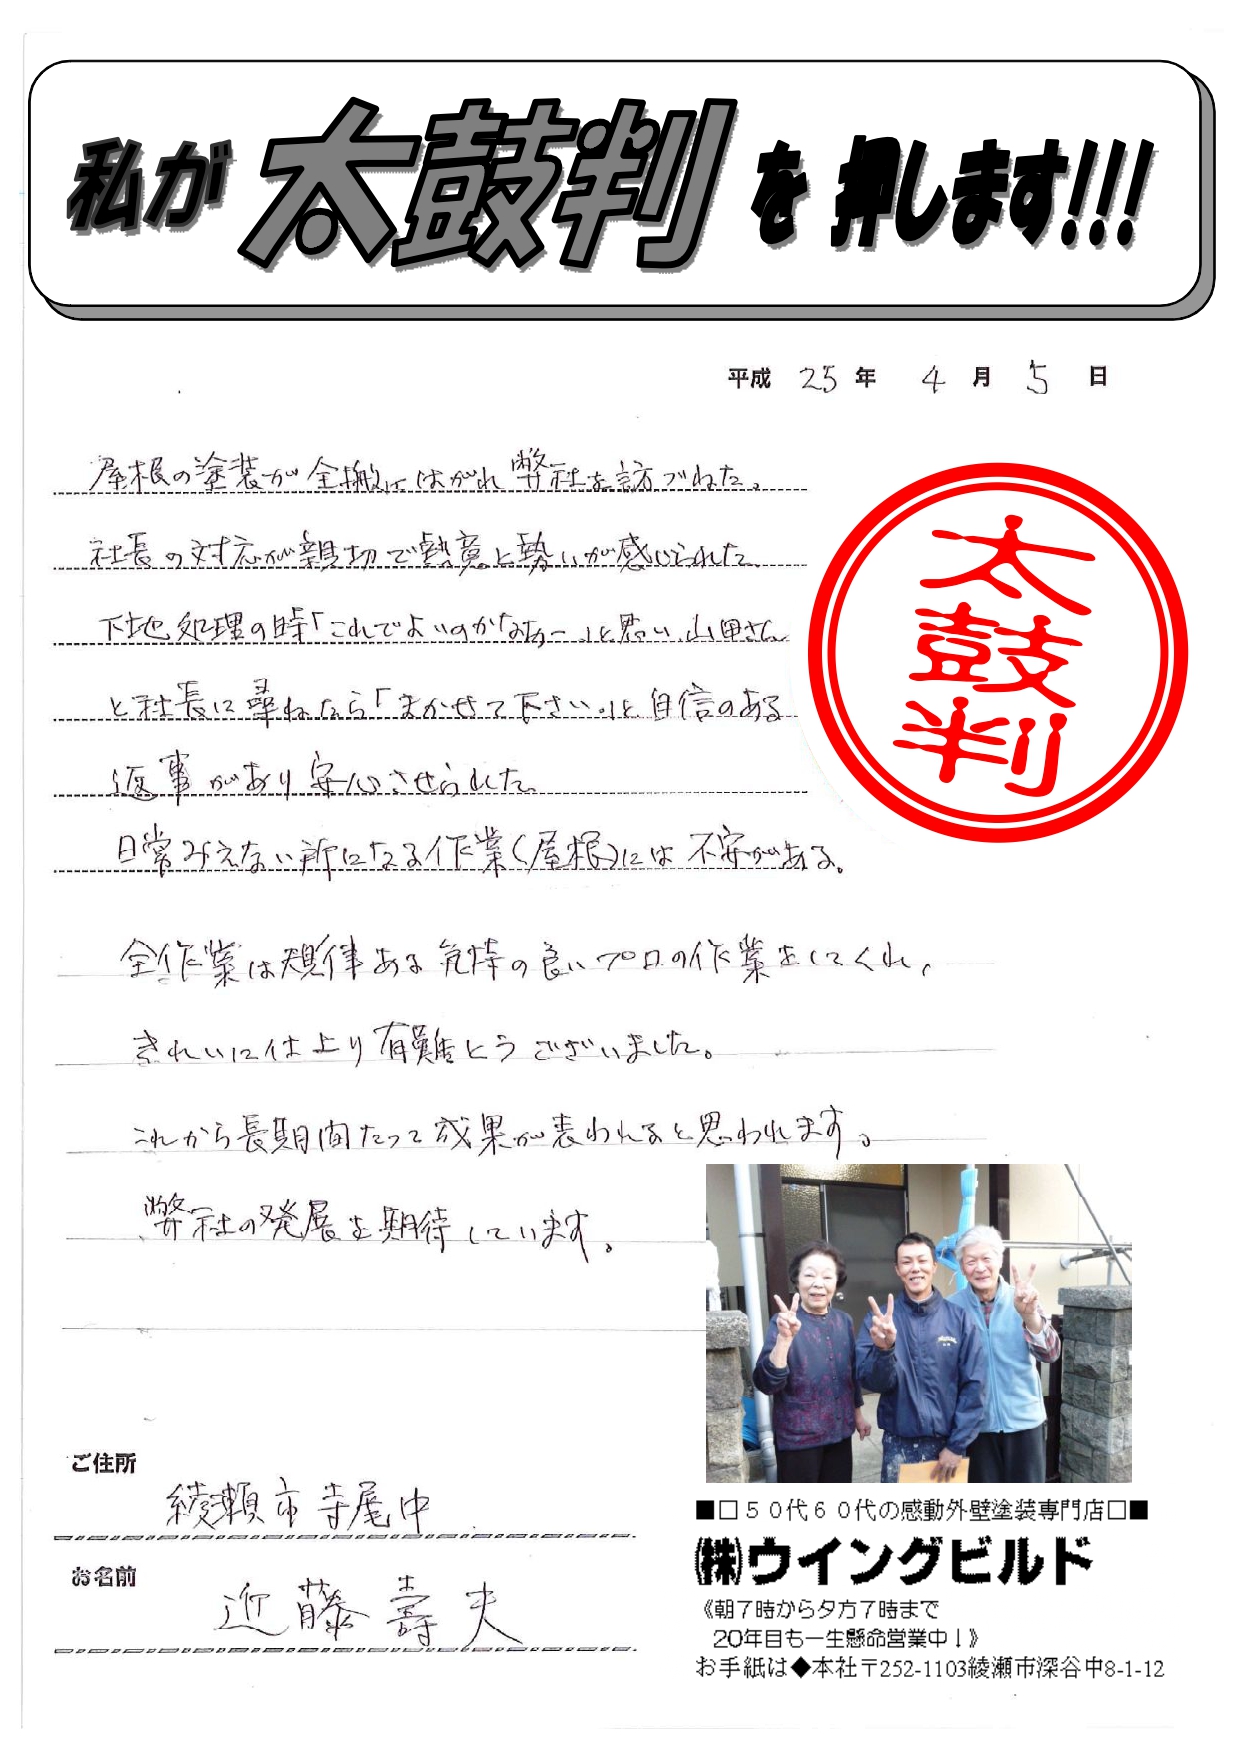 私が太鼓判を押します!!!
平成 25年 4月 5日
屋根の塗装が全搬にはがれ弊社を訪づねた。
社長の対応が親切で熱意と勢いが感じられた
下地処理の時「これでよいのかなあー」と思い山田さん
と社長に尋ねたら「まかせて下さい。」と自信のある
返事があり安心させられた。
日常みえない所になる作業(屋根)には不安がある。
全作業は規律ある気持の良いプロの作業をしてくれ、
きれいに仕上り有難とうございました。
これから長期間たって成果が表われると思われます。
弊社の発展を期待しています。
太鼓判
ご住所
綾瀬市寺尾中
お名前
近藤壽夫
■□50代60代の感動外壁塗装専門店□■
㈱ウイングビルド
《朝7時から夕方7時まで
20年目も一生懸命営業中!》
お手紙は◆本社〒252-1103綾瀬市深谷中8-1-12